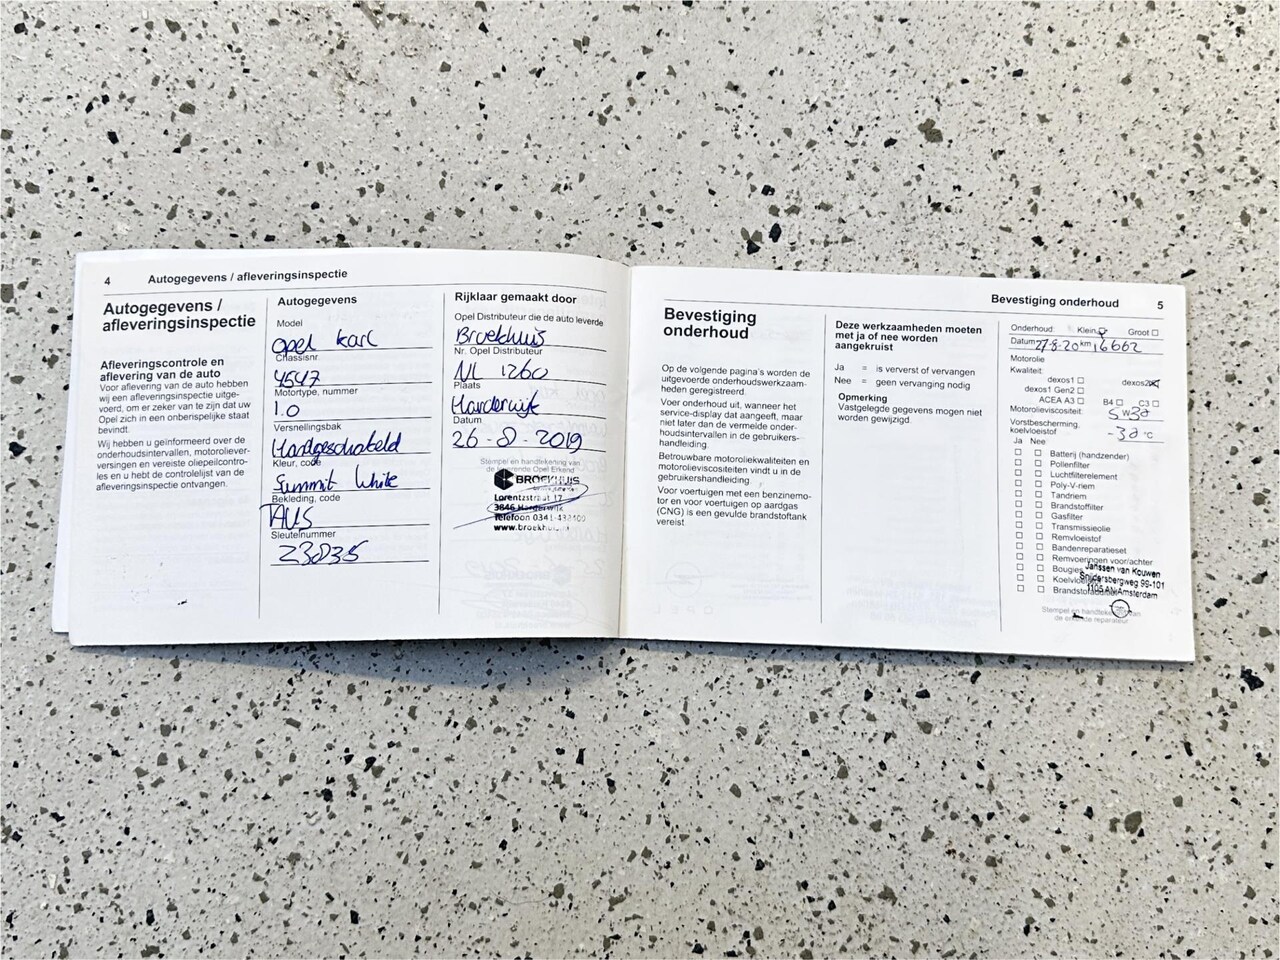 4 Autogegevens / afleveringsinspectie
Autogegevens /
afleveringsinspectie
Afleveringscontrole en
aflevering van de auto
Voor aflevering van de auto hebben
wij een afleveringsinspectie uitge-
voerd, om er zeker van te zijn dat uw
Opel zich in een onberispelijke staat
bevindt.
Wij hebben u geïnformeerd over de
onderhoudsintervallen, motoroliever-
versingen en vereiste oliepeilcontro-
les en u hebt de controlelijst van de
afleveringsinspectie ontvangen.
Autogegevens
Model
Opel Karl
Chassisnr.
4547
Motortype, nummer
1.0
Versnellingsbak
Handgeschakeld
Kleur, code
Summit White
Bekleding, code
Sleutelnummer
Z3835
Rijklaar gemaakt door
Opel Distributeur die de auto leverde
Broekhuis
Nr. Opel Distributeur
NL 1260
Plaats
Harderwijk
Datum
26-8-2019
Stempel en handtekening van
de leverende Opel Erkend
BROEKHUIS
Lorentzstraat 17
3846 Harderwijk
Telefoon 0341-432400
www.broekhuis.nl
Bevestiging onderhoud 5
Bevestiging
onderhoud
Op de volgende pagina's worden de
uitgevoerde onderhoudswerkzaam-
heden geregistreerd.
Voer onderhoud uit, wanneer het
service-display dat aangeeft, maar
niet later dan de vermelde onder-
houdsintervallen in de gebruikers-
handleiding.
Betrouwbare motoroliekwaliteiten en
motorolieviscositeiten vindt u in de
gebruikershandleiding.
Voor voertuigen met een benzinemo-
tor en voor voertuigen op aardgas
(CNG) is een gevulde brandstoftank
vereist.
Deze werkzaamheden moeten
met ja of nee worden
aangekruist
Ja = is ververst of vervangen
Nee = geen vervanging nodig
Opmerking
Vastgelegde gegevens mogen niet
worden gewijzigd.
Onderhoud: Klein Groot
Datum 27-8-20 km 16662
Motorolie
Kwaliteit:
dexos1 dexos2
dexos1 Gen2
ACEA A3 B4 C3
Motorolieviscositeit: 5w30
Vorstbescherming,
koelvloeistof -38 °C
Ja Nee
Batterij (handzender)
Pollenfilter
Luchtfilterelement
Poly-V-riem
Tandriem
Brandstoffilter
Gasfilter
Transmissieolie
Remvloeistof
Bandenreparatieset
Remvoeringen voor/achter
Bougies
Janssen van Kouwen
Snijdersbergweg 99-101
1105 AN Amsterdam
Stempel en handtekening van
de erkende reparateur